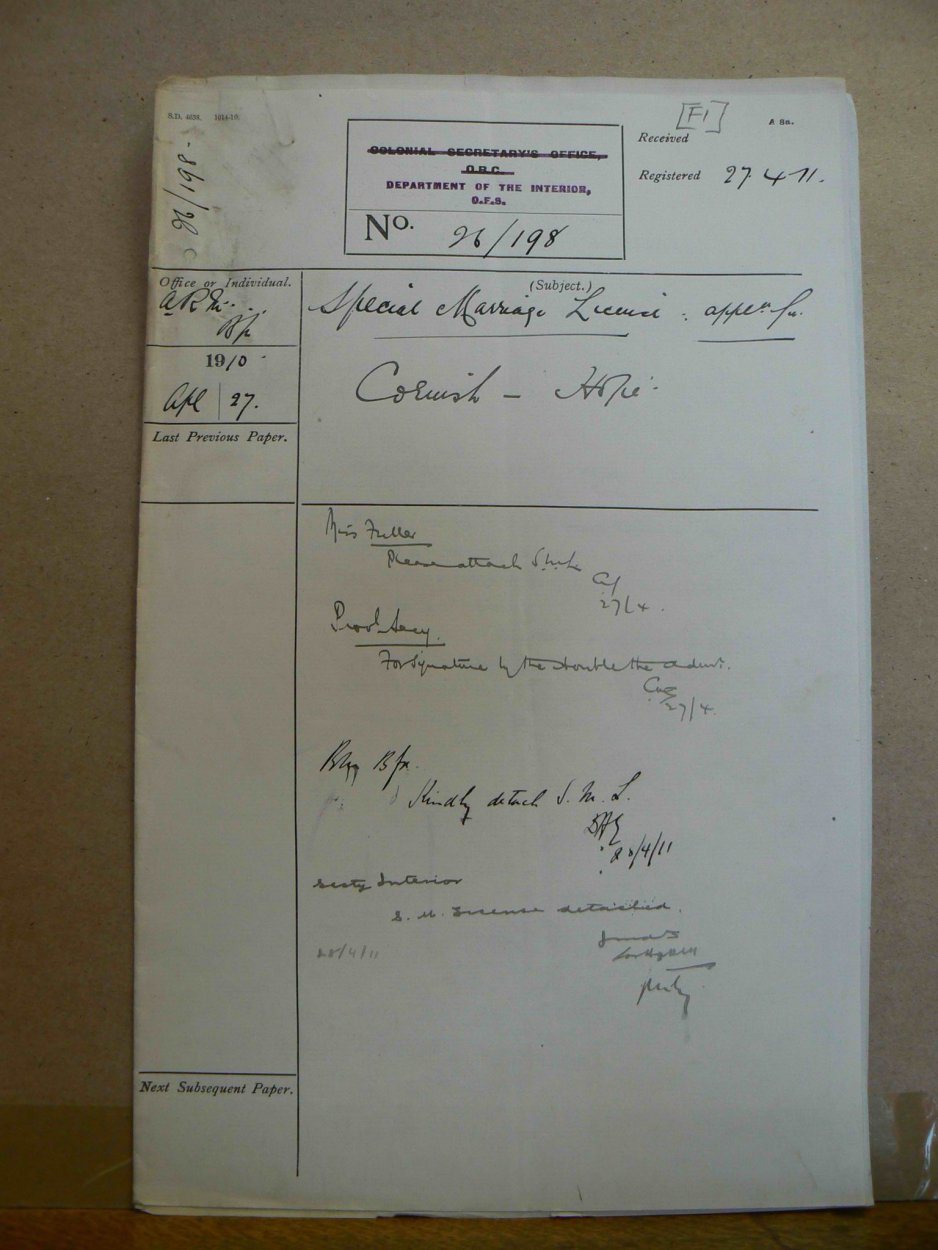 S.D. 4638. 1014-10.
[F1]
A 8a.
26/198
COLONIAL SECRETARY'S OFFICE,
O.R.C.
DEPARTMENT OF THE INTERIOR,
O.F.S.
No. 26/198
Received
Registered 27.4.11.
Office or Individual.
A R M
Bfn
1910
Apl 27.
Last Previous Paper.
(Subject.)
Special Marriage License: appln for
Cornish - Hope
Miss Fuller
Please attach S.M.L.
27/4.
Provl Secy.
For signature by the Honble the Admr.
27/4.
Bfn.
Kindly detach S. M. L.
28/4/11
Secty Interior
S. M. License detached.
28/4/11
Next Subsequent Paper.